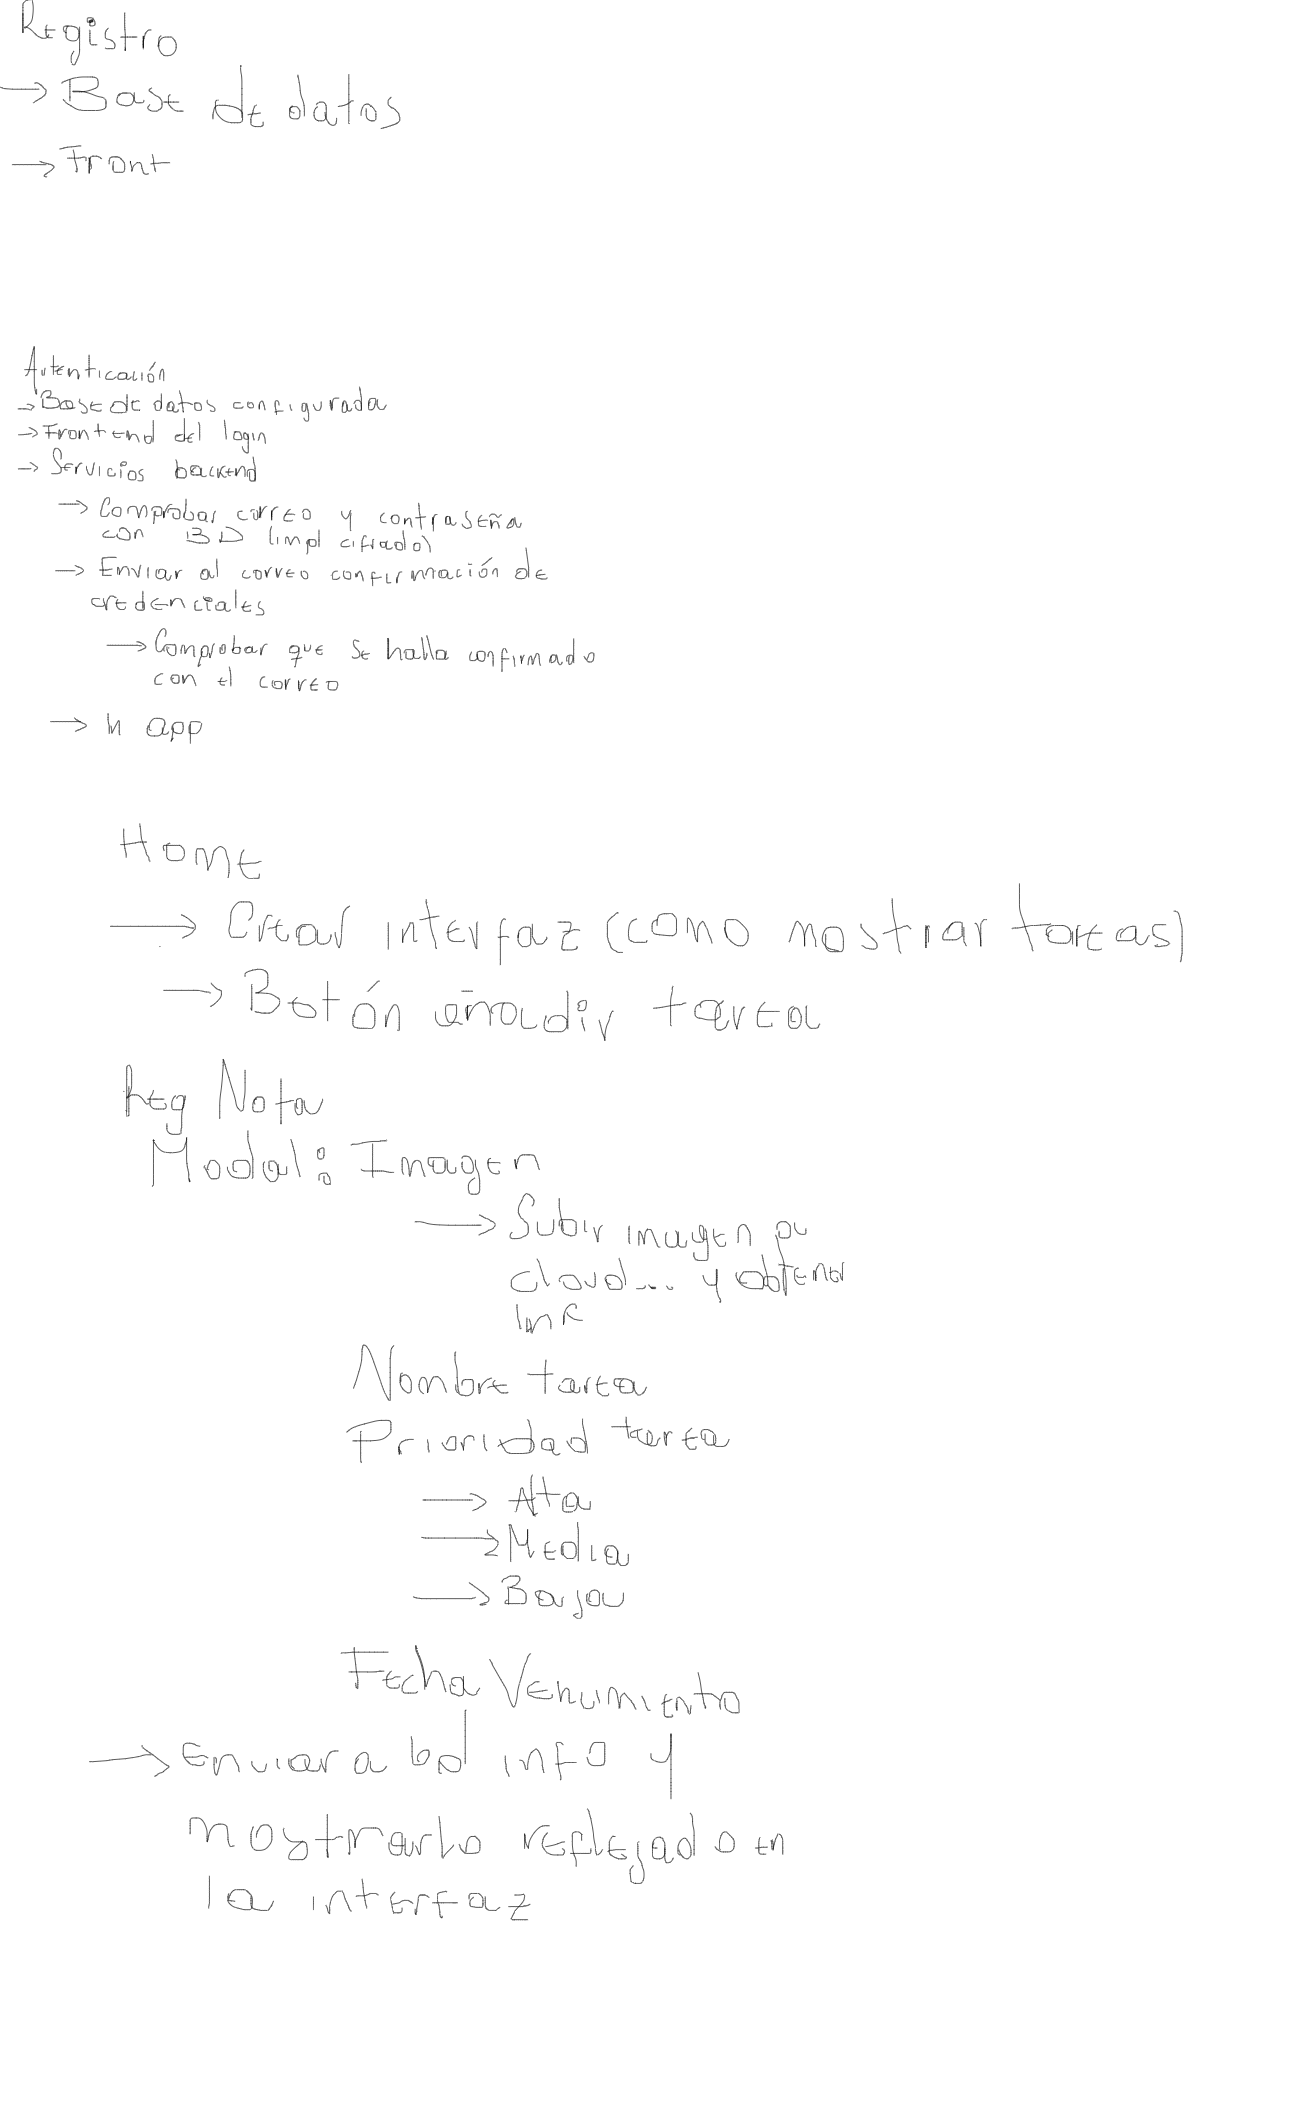 Registro
→ Base de datos
→ Front
Autenticación
→ Base de datos configurada
→ Frontend del login
→ Servicios backend
→ Comprobar correo y contraseña
con BD (impl cifrado)
→ Enviar al correo confirmación de
credenciales
→ Comprobar que se halla confirmado
con el correo
→ In app
Home
→ Crear interfaz (como mostrar tareas)
→ Botón añadir tarea
Reg Nota
Modal: Imagen
→ Subir imagen a
cloud... y obtener
link
Nombre tarea
Prioridad tarea
→ Alta
→ Media
→ Baja
Fecha Vencimiento
→ Enviar a bd info y
mostrarlo reflejado en
la interfaz